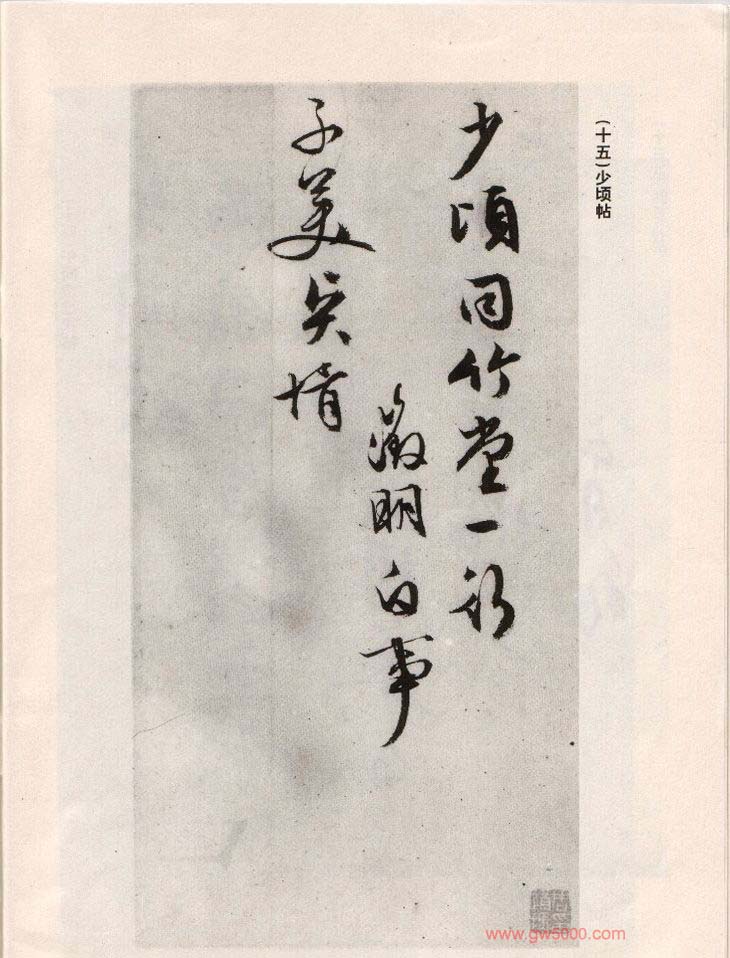 (十五)少顷帖
少頃同竹堂一行
徵明白事
子美
www.gw5000.com